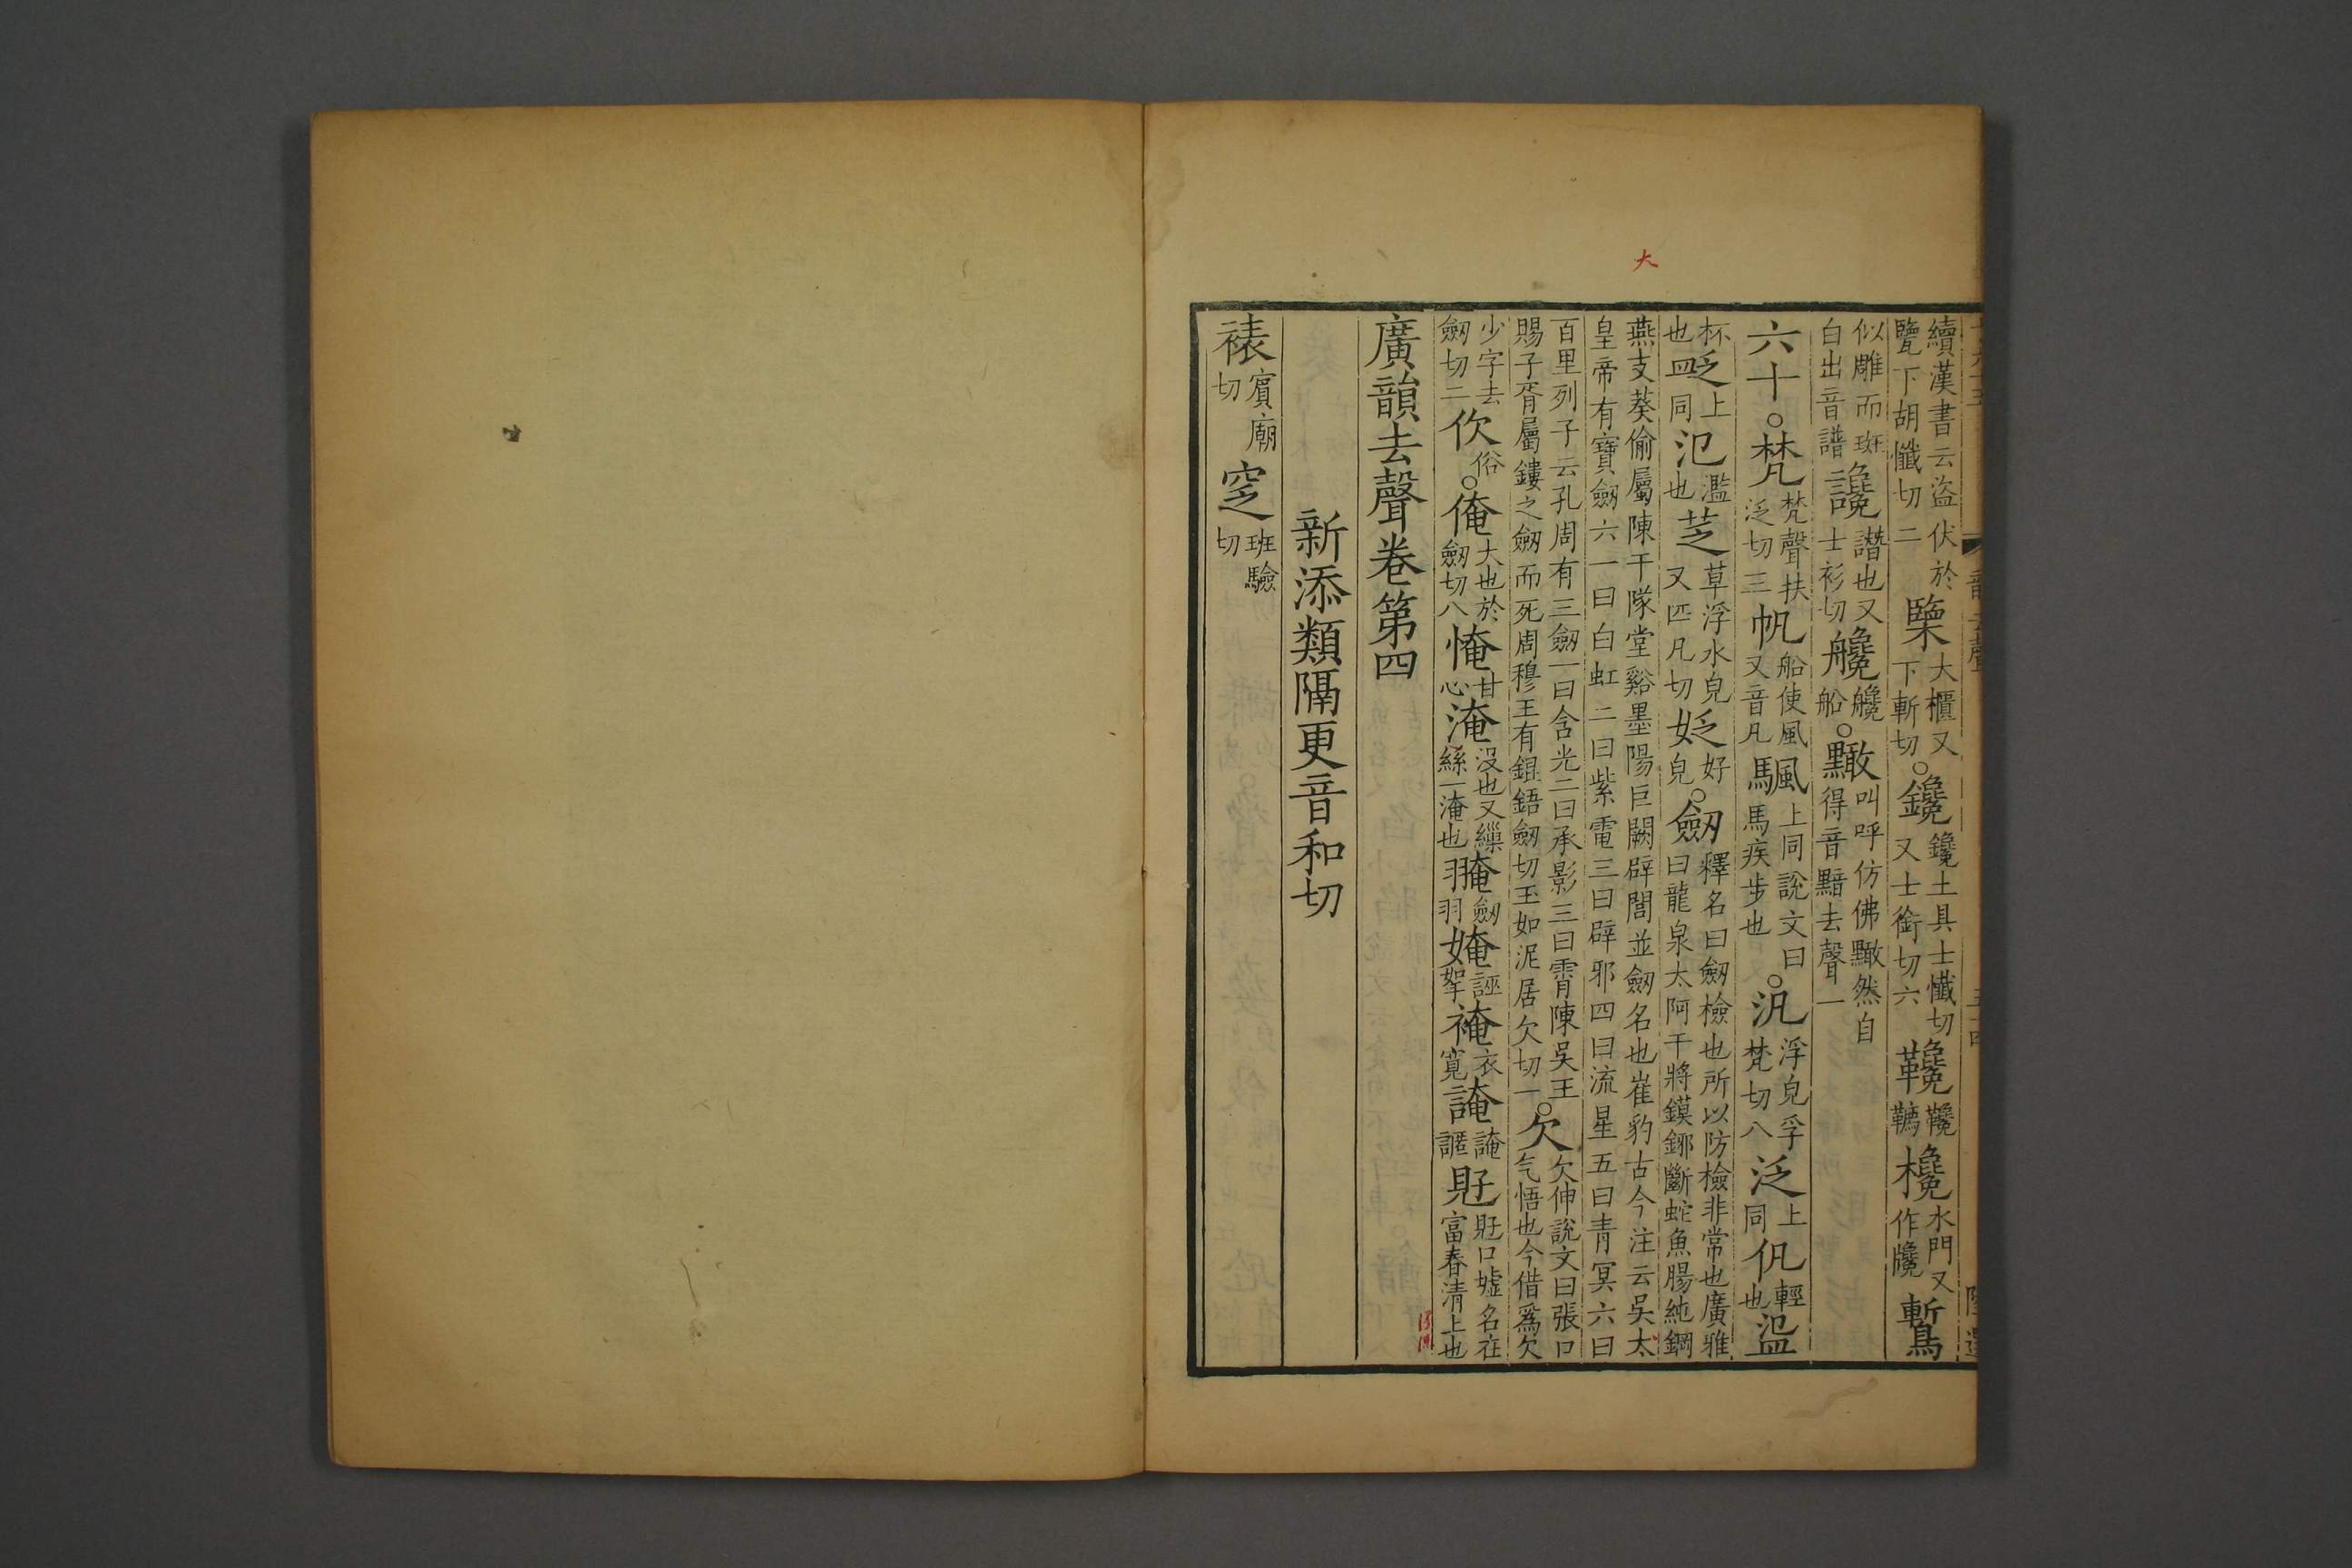 續漢書云盜伏於覽下胡懺切二㯺大櫃又下斬切○鑱鑱土具士懺切又士銜切六鞼鞼韉欃水門又作牅䳻
似雕而斑白出音譜讒譖也又士衫切艬艬船○㺖叫呼仿佛㺖然自得音黯去聲一
六十○梵梵聲扶泛切三帆船使風又音凡颿上同說文曰馬疾步也○汎浮皃孚梵切八泛上同㠶輕也盕
杯也䀏上同氾濫也芝草浮水皃又匹凡切㚫好皃○劒釋名曰劒檢也所以防檢非常也廣雅曰龍泉太阿干將鏌鋣斷蛇魚腸純鋼
燕支蔡偷屬陳干隊堂谿墨陽巨闕辟閭並劒名也崔豹古今注云吳太皇帝有寶劒六一曰白虹二曰紫電三曰辟邪四曰流星五曰青冥六曰
百里列子云孔周有三劒一曰含光二曰承影三曰霄陳吳王賜子胥屬鏤之劒而死周穆王有錕鋙劒切玉如泥居欠切一○欠欠伸說文曰張口气悟也今借爲欠
少字去劒切二㐸俗○俺大也於劒切八㤿甘心淹沒也又繅絲一淹也䎨劒羽㛪誣挐裺衣寬䛳䛳諲𧵊𧵊口墟名在富春清上也
廣韻去聲卷第四
新添類隔更音和切
裱賓廟切窆班驗切
大